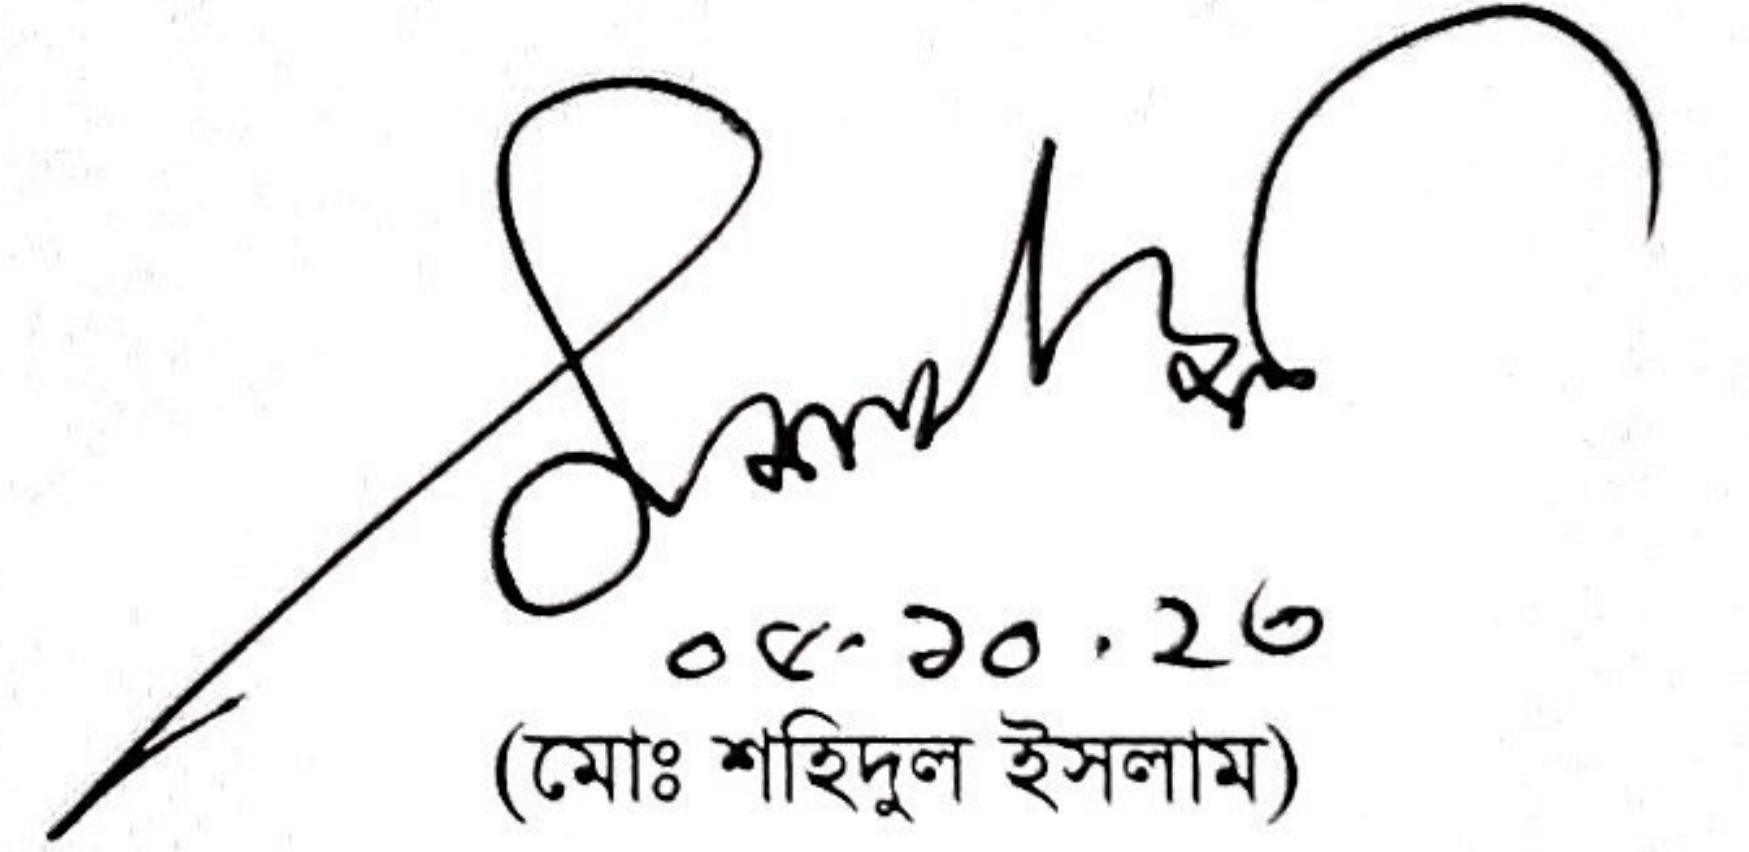 ০৫-১০.২৩
(মোঃ শহিদুল ইসলাম)